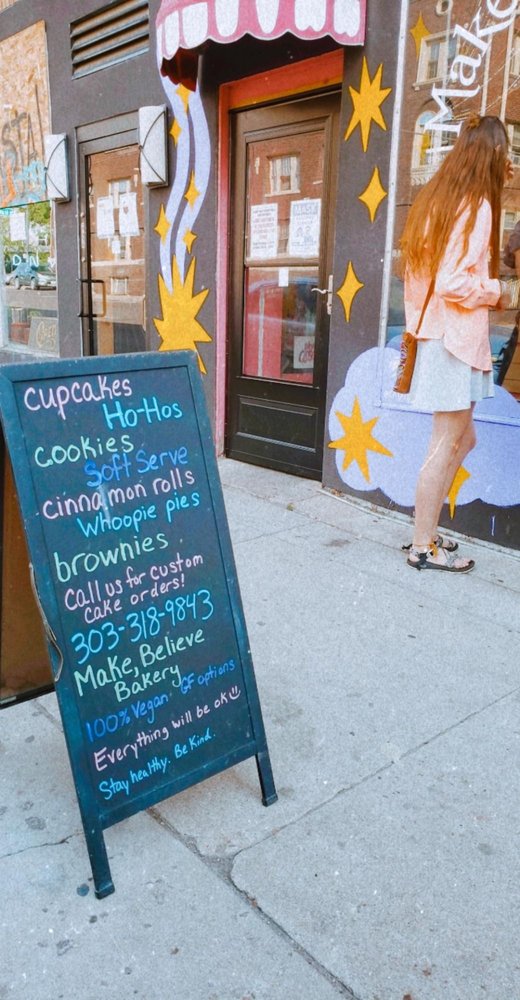 Make
cupcakes
Ho-Hos
cookies
Soft Serve
cinnamon rolls
Whoopie pies
brownies
Call us for custom
cake orders!
303-318-9843
Make, Believe
Bakery
100% Vegan GF options
Everything will be ok☺
Stay healthy. Be Kind.